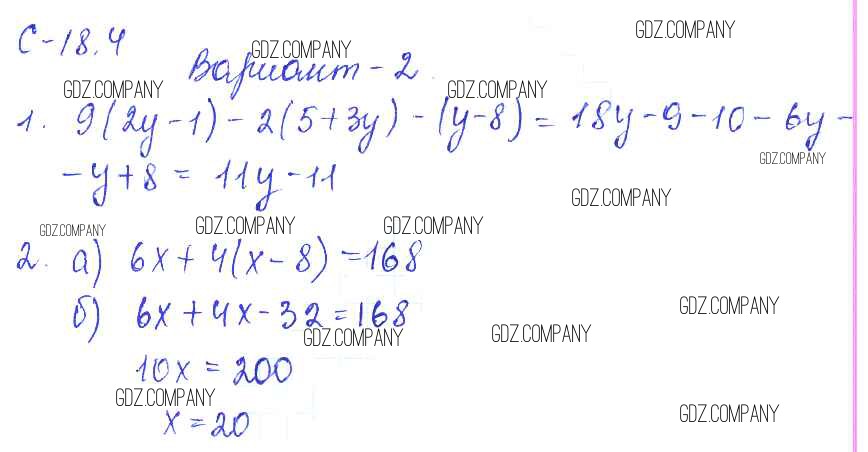 С-18.4
GDZ.COMPANY
GDZ.COMPANY
Вариант-2
GDZ.COMPANY
GDZ.COMPANY
1. 9(2y-1)-2(5+3y)-(y-8)=18y-9-10-6y-
GDZ.COMPANY
-y+8=11y-11
GDZ.COMPANY
GDZ.COMPANY
GDZ.COMPANY
GDZ.COMPANY
2. а) 6x+4(x-8)=168
б) 6x+4x-32=168
GDZ.COMPANY
GDZ.COMPANY
GDZ.COMPANY
10x=200
GDZ.COMPANY
x=20
GDZ.COMPANY